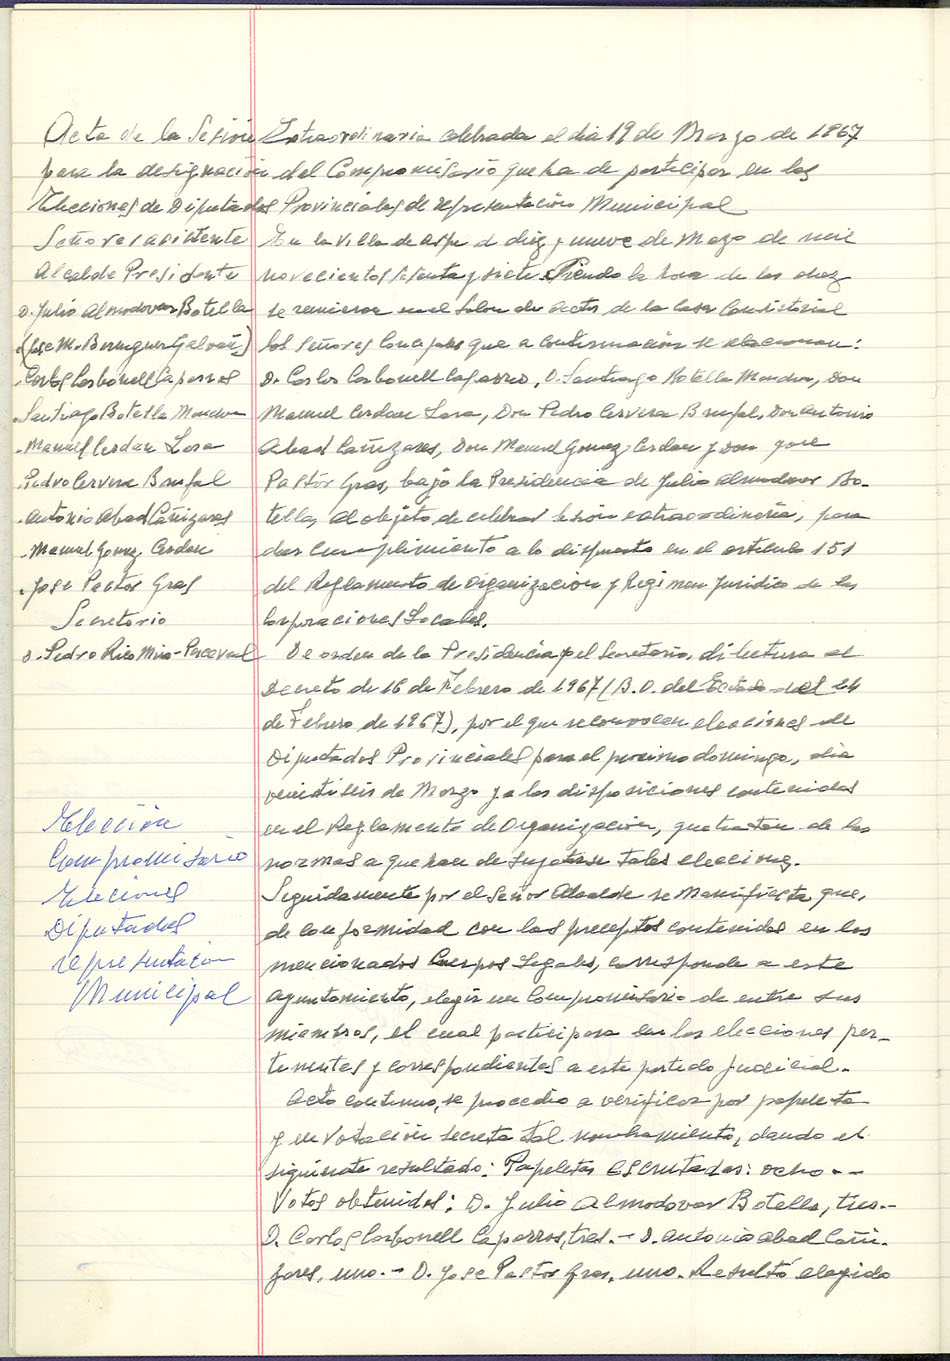 Acta de la Sesión Extraordinaria celebrada el dia 19 de Marzo de 1967
para la designación del Compromisario que ha de participar en las
Elecciones de Diputados Provinciales de representación Municipal
Señores asistente
Alcalde Presidente
D. Julio Almodovar Botella
(Jose M. Berenguer Galvañ)
Carlos Carbonell Caparros
Santiago Botella Mondra
Manuel Cerdan Lora
Pedro Cervera Brufal
Antonio Abad Cañizares
Manuel Gomez Cerdan
Jose Pastor Gras
Secretario
D. Pedro Rico Mira-Perceval
Elección
Compromisario
Elecciones
Diputados
representación
Municipal
En la Villa de Aspe a diez y nueve de Marzo de mil
novecientos sesenta y siete. Siendo la hora de las diez
se reunieron en el Salon de actos de la Casa Consistorial
los Señores Concejales que a continuación se relacionan:
D. Carlos Carbonell Caparros, D. Santiago Botella Mondra, Don
Manuel Cerdan Lora, Don Pedro Cervera Brufal, Don Antonio
Abad Cañizares, Don Manuel Gomez Cerdan y Don Jose
Pastór Gras, bajo la Presidencia de Julio Almodovar Bo-
tella, al objeto de celebrar sesión extraordinaria, para
dar cumplimiento a lo dispuesto en el articulo 151
del Reglamento de Organización y Regimen Juridico de las
Corporaciones Locales.
De orden de la Presidencia, y el Secretario, di lectura al
Decreto de 16 de Febrero de 1967 (B.O. del Estado del 24
de Febrero de 1967), por el que se convocan elecciones de
Diputados Provinciales para el proximo domingo, dia
veintiseis de Marzo y a las disposiciones contenidas
en el Reglamento de Organización, que tratan de las
normas a que han de sujetarse tales elecciones.
Seguidamente por el Señor Alcalde se manifiesta que,
de conformidad con los preceptos contenidos en los
mencionados Cuerpos Legales, corresponde a este
ayuntamiento, elegir un Compromisario de entre sus
miembros, el cual participara en las elecciones per-
tinentes y correspondientes a este partido judicial.-
Acto continuo, se procedió a verificar por papeleta
y en votación secreta tal nombramiento, dando el
siguiente resultado: Papeletas escrutadas: ocho --
Votos obtenidos: D. Julio Almodovar Botella, tres.-
D. Carlos Carbonell Caparros, tres.- D. Antonio Abad Cañi-
zares, uno.- D. Jose Pastor Gras, uno. Resultó elegido